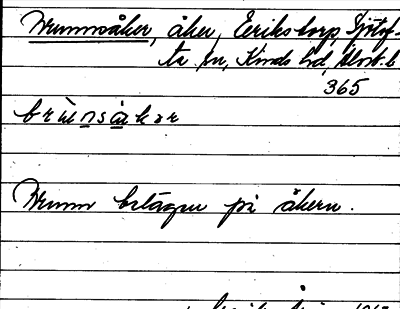 Brunnsåker, åker, Eerikstorp, Sjötof-
ta sn, Kinds hd, Älvsb. l
365
brùnsåkər
Brunn belägen på åkern.